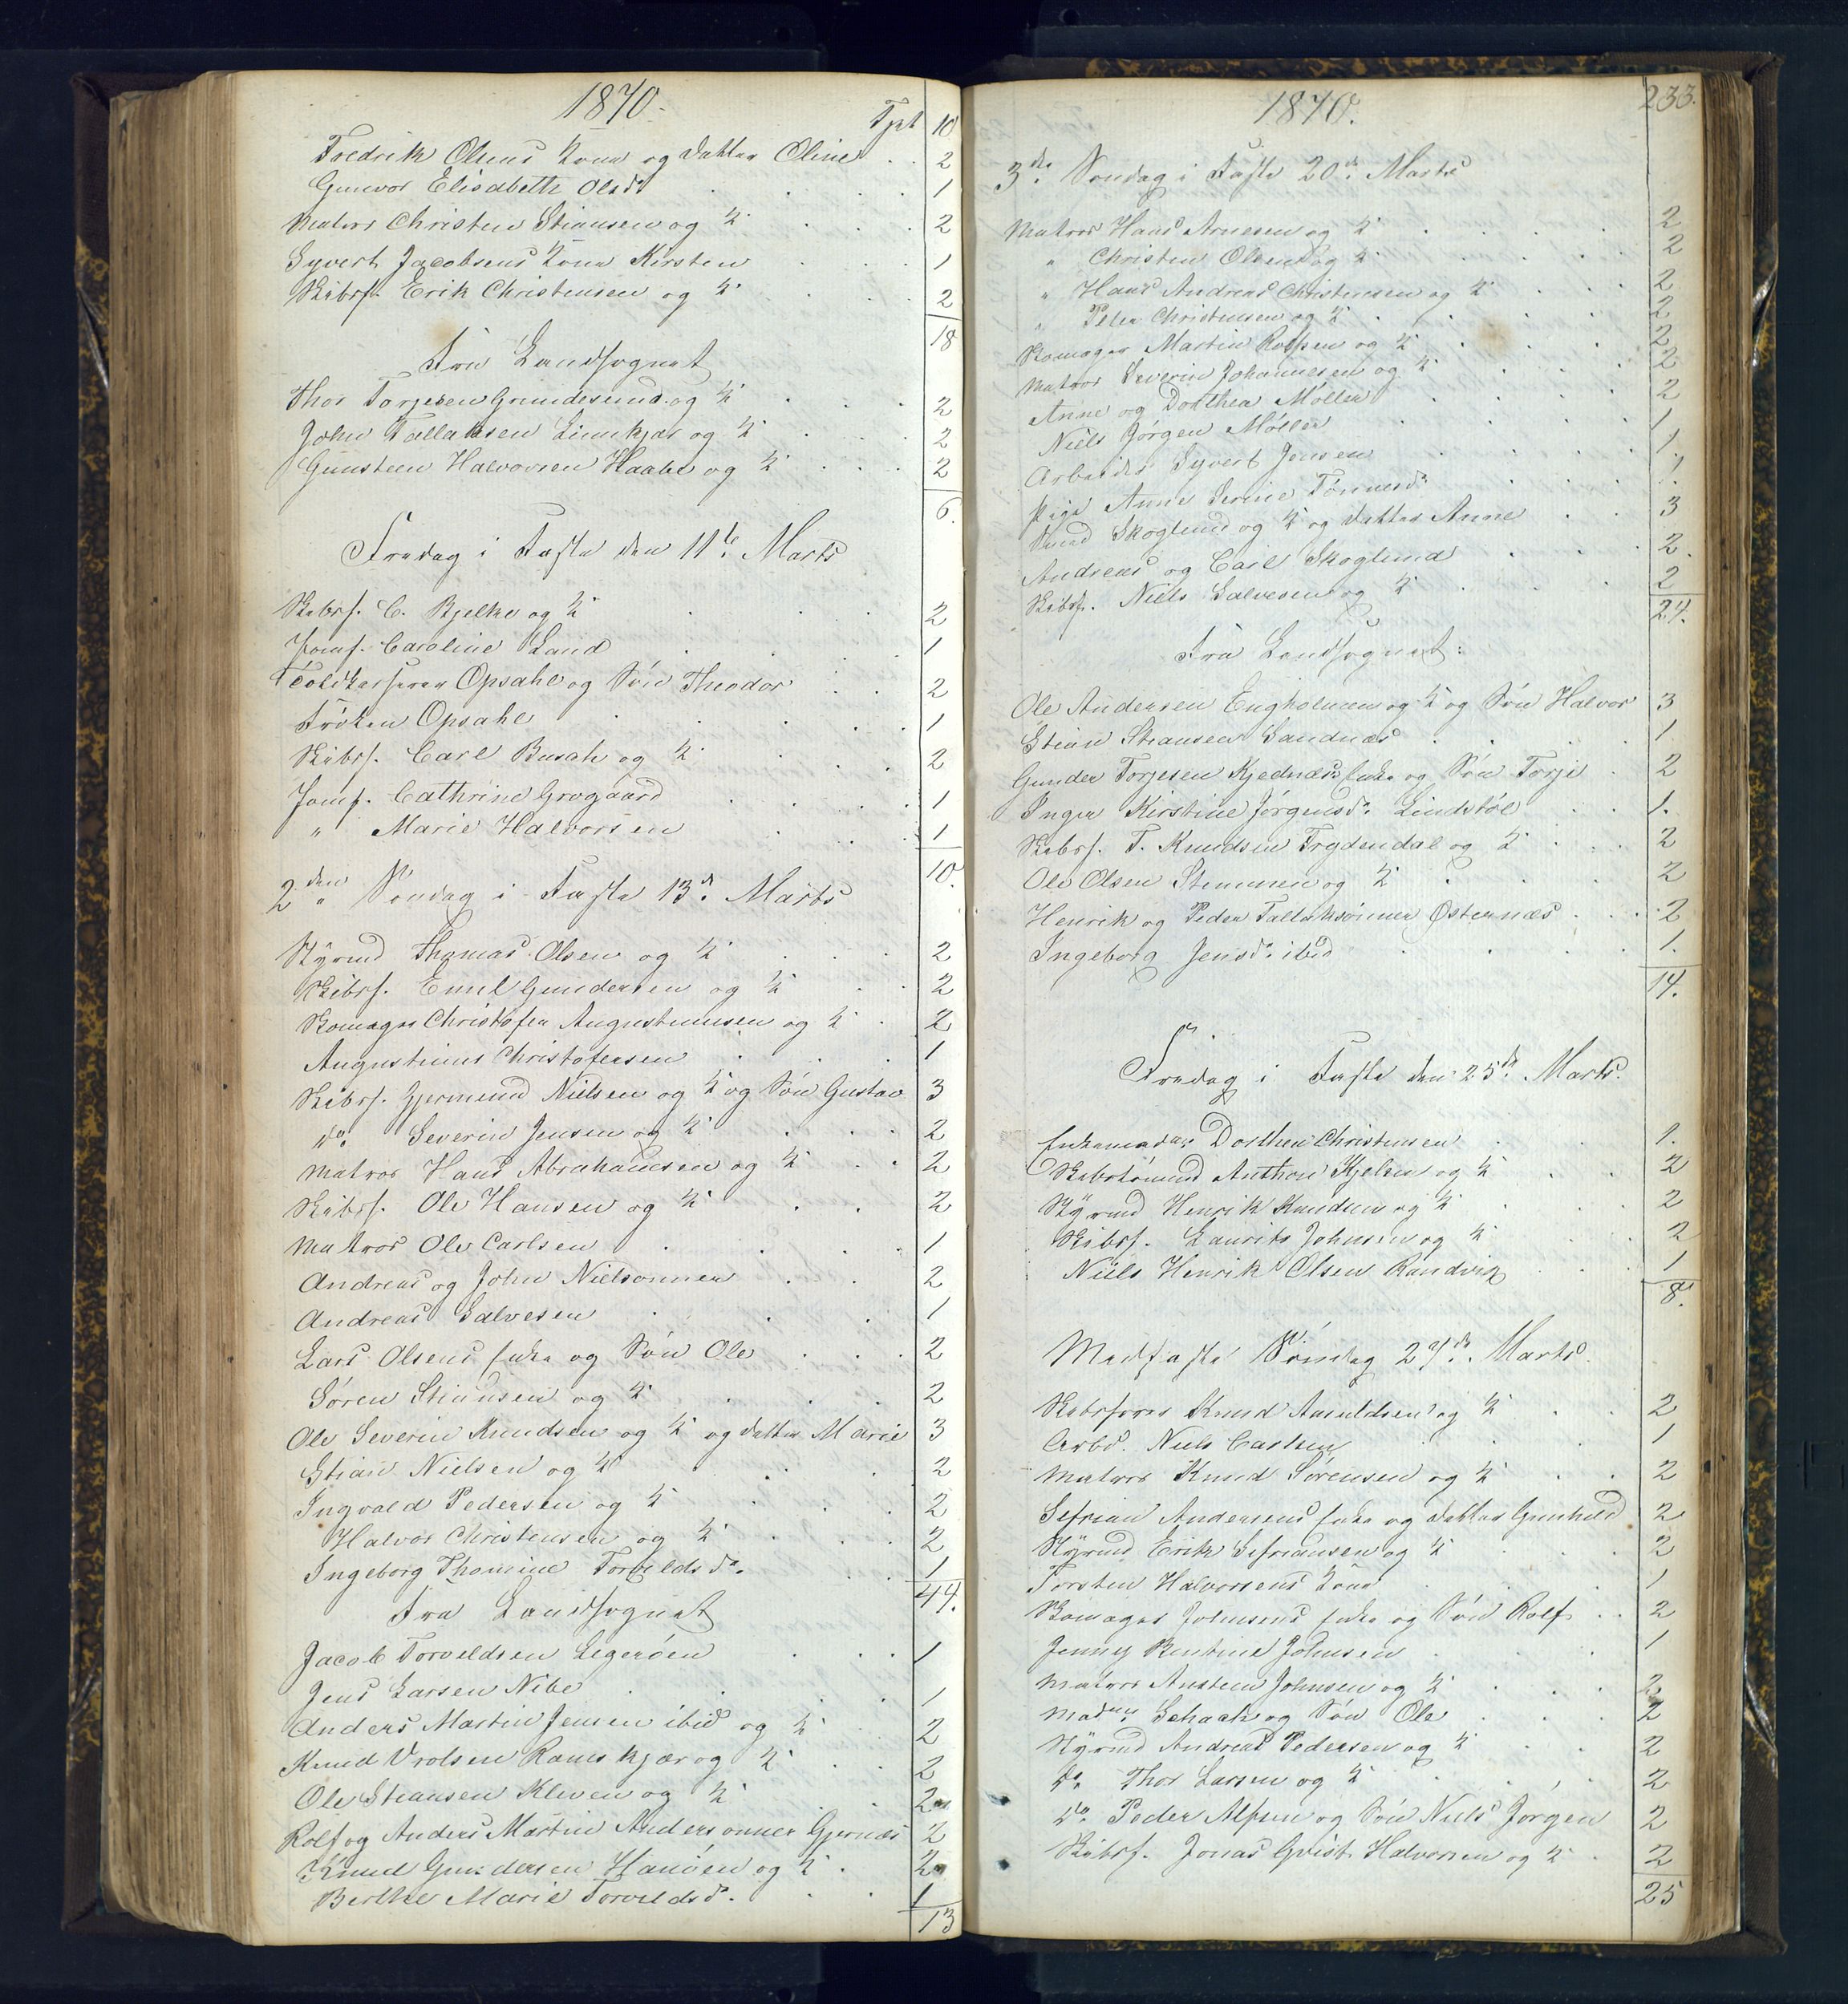 1870.
Tpt 10
Fredrik Olsens Kone og Datter Oline . . 2
Gunvor Elisabeth Olsdr 1
Matros Christen Stiansen og K. 2
Syvert Jacobsens Kone Kirsten 1
Skibsf. Erik Christensen og K. 2
18
Fra Landsognet
Thor Torjesen Grundesund og K. 2
John Tallaksen Limkjær og K. 2
Gunsteen Halvorsen Haabe og K. 2
6.
Fredag i Faste den 11te Marts
Skibsf. C. Bjelke og K. 2
Jomf. Caroline Lund 1
Toldkasserer Opsahl og Søn Theodor 2
Frøken Opsahl 1
Skibsf. Carl Busch og K. 2
Jomf. Cathrine Grogaard 1
" Marie Halvorsen 1
10.
2den Søndag i Faste 13d. Marts
Styrmd Thomas Olsen og K. 2
Skibsf. Emil Gundersen og K. 2
Skomager Christofer Augustinusen og K. 2
Augustinus Christofersen 1
Skibsf. Gjermund Nielsen og K. og Søn Gustav 3
Do. Severin Jensen og K. 2
Matros Hans Abrahamsen og K. 2
Skibsf. Ole Hansen og K. 2
Matros Ole Carlsen 1
Andreas og John Nielsønner 2
Andreas Salvesen 1
Lars Olsens Enke og Søn Ole 2
Søren Stiansen og K. 2
Ole Severin Knudsen og K. og Datter Marie 3
Stian Nielsen og K. 2
Ingvald Pedersen og K. 2
Halvor Christensen og K. 2
Ingeborg Thomine Torvildsdr. 1
44.
Fra Landsognet
Jacob Torveldsen Legerøen 1
Jens Larsen Nibe 1
Anders Martin Jensen ibid og K. 2
Knud Vrolsen Ramskjær og K. 2
Ole Stiansen Kleven og K. 2
Rolf og Anders Martin Andersønner Gjernæs 2
Knud Gundersen Hanøen og K. 2
Berthe Marie Torvildsd. 1
13
1870.
233.
3die Søndag i Faste 20de Marts
Matros Hans Arnesen og K. 2
" Christen Olsen og K. 2
" Hans Andreas Christensen og K. 2
" Peter Christensen og K. 2
Skomager Martin Rolfsen og K. 2
Matros Severin Johannesen og K. 2
Anne og Dorthea Møller 2
Niels Jørgen Møller 1
Arbeider Syvert Jensen 1.
Pige Anne Serine Tønnesdr 1
Svend Skoglund og K. og Datter Anne 3
Andreas og Carl Skoglund 2.
Skibsf. Niels Salvesen og K. 2
24.
Fra Landsognet:
Ole Andersen Engholmen og K. og Søn Halvor 3
Stian Stiansen Sandnæs 1
Gunder Torjesen Kjednæs Enke og Søn Torje 2
Inger Kirstine Jørgensdr Lindstøl 1.
Skibsf. T. Knudsen Trydendal og K. 2
Ole Olsen Stemmen og K. 2
Henrik og Peder Tallaksønner Østernæs 2
Ingeborg Jensdr ibid 1.
14.
Fredag i Faste den 25de Marts.
Enkemadam Dorthea Christensen 1.
Skibstømmd Anthon Kjelsen og K. 2
Styrmd Henrik Knudsen og K. 2
Skibsf. Laurits Johnsen og K. 2
Niels Henrik Olsen Randvig 1
8.
Midfaste Søndag 27de Marts.
Skibsfører Knud Asuldsen og K. 2
Arbd. Niels Carlsen 1
Matros Knud Sørensen og K. 2
Sefrian Andersens Enke og Datter Gunhild 2
Styrmd Erik Sefriansen og K. 2
Torsten Halvorsens Kone 1
Skomager Johnsens Enke og Søn Rolf 2
Jenny Bentine Johnsen 1
Matros Anstein Johnsen og K. 2
Madme Schack og Søn Ole 2
Styrmd Andreas Pedersen og K. 2
Do. Thor Larsen og K. 2
Do. Peder Alfsen og Søn Niels Jørgen 2
Skibsf. Jonas Qvist Halvorsen og K. 2
25